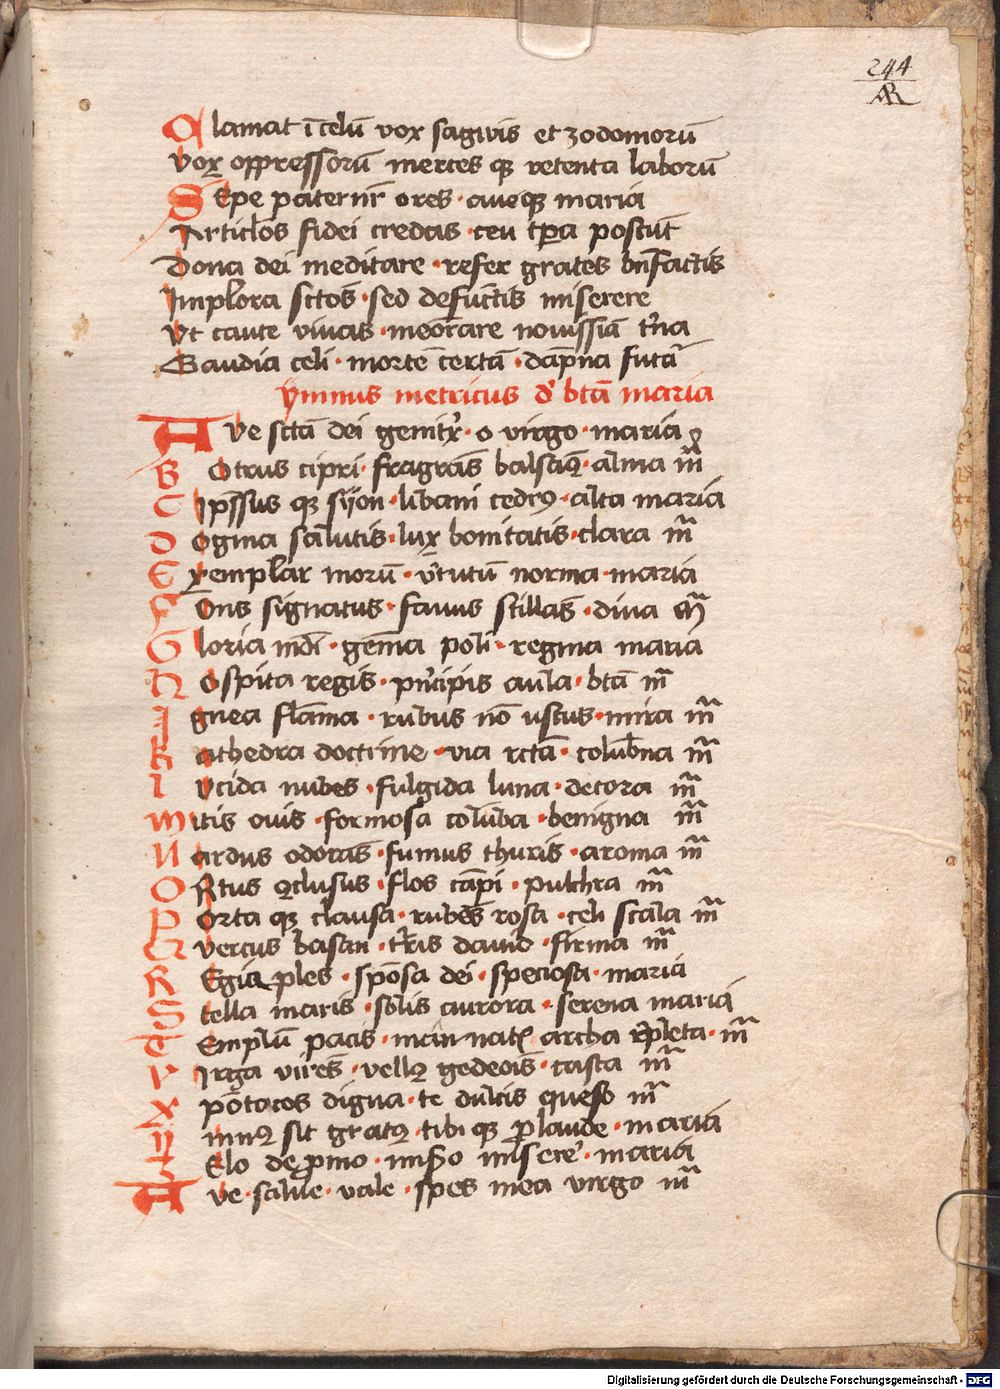 244
AR
Clamat ī celū vox sagwis et zodomorū
Vox oppressorū merces qȝ retenta laborū
Sepe pater nr̄ ores · aueqȝ maria
Articlos fidei credas · ceu tꝑa poscūt
Dona dei meditare · refer grates bn̄factis
Implora sctos · sed defūctis miserere
Vt caute viuas · meōrare nouissiā tr̄na
Gaudia celi · mortē certā · dāpna futā
ymnus metricus d' btā maria
Ave sctā dei genitx̄ · o virgo · maria
Botrus cipri · fragrās balsāꝯ · alma mᷓ
Cipssus qȝ syon · libani cedrꝯ · alta maria
Dogma salutis · lux bonitatis · clara mᷓ
Exemplar morū · v̓tutū norma · maria
Fōns signatus · fauus stillās · diua mᷓ
Gloria mdi · gēma poli · regina maria
Hospita regis · pn̓cipis aula · btā mᷓ
Ignea flāma · rubus nō ustus · mira mᷓ
Kathedra doctrine · via rctā · colūbna mᷓ
Lucida nubes · fulgida luna · decora mᷓ
Mitis ouis · formosa colūba · benigna mᷓ
Nardus odorās · fumus thuris · aroma mᷓ
Ortus ꝯclusus · flos cāpi · pulchra mᷓ
Porta qȝ clausa · rubēs rosa · celi scala mᷓ
Quercus basan · tr̓ris dauid · firma mᷓ
Regia ples · spōsa dei · speciosa · maria
Stella maris · solis aurora · serena maria
Templū pacis · man̄nat · archa repleta · mᷓ
Virga virēs · vellꝯ gedeoīs · casta mᷓ
Xpōtocos digna · te dulcis queso mᷓ
Ymnꝯ sit gratꝯ · tibi qȝ ꝑ laude · maria
Zelo de ꝓmo · misero miserere · maria
Ave · salue · vale · spes mea virgo mᷓ
Digitalisierung gefördert durch die Deutsche Forschungsgemeinschaft - DFG